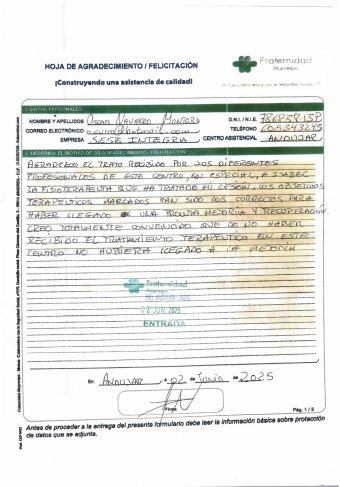 HOJA DE AGRADECIMIENTO / FELICITACIÓN
Fraternidad
Muprespa
¡Construyendo una asistencia de calidad!
1. DATOS PERSONALES
NOMBRE Y APELLIDOS Oscar Navarro Montoro D.N.I. / N.I.E.
CORREO ELECTRÓNICO TELÉFONO
EMPRESA SESE INTEGRA CENTRO ASISTENCIAL ANDUJAR
2. DESCRIBA EL MOTIVO DE SU AGRADECIMIENTO / FELICITACIÓN
AGRADEZCO EL TRATO RECIBIDO POR LOS DIFERENTES
PROFESIONALES DE ESTE CENTRO, EN ESPECIAL, A ISABEL
LA FISIOTERAPEUTA QUE HA TRATADO MI LESIÓN. LOS OBJETIVOS
TERAPEUTICOS MARCADOS HAN SIDO LOS CORRECTOS PARA
HABER LLEGADO A UNA PRONTA MEJORIA Y RECUPERACIÓN.
CREO TOTALMENTE CONVENCIDO QUE DE NO HABER
RECIBIDO EL TRATAMIENTO TERAPEUTICO EN ESTE
CENTRO NO HUBIERA LLEGADO A LA MEJORIA
Fraternidad
Muprespa
02 JUN 2025
ENTRADA
En ANDUJAR, a 02 de Junio de 2025
Firma
Pág. 1 / 2
Antes de proceder a la entrega del presente formulario debe leer la información básica sobre protección
de datos que se adjunta.